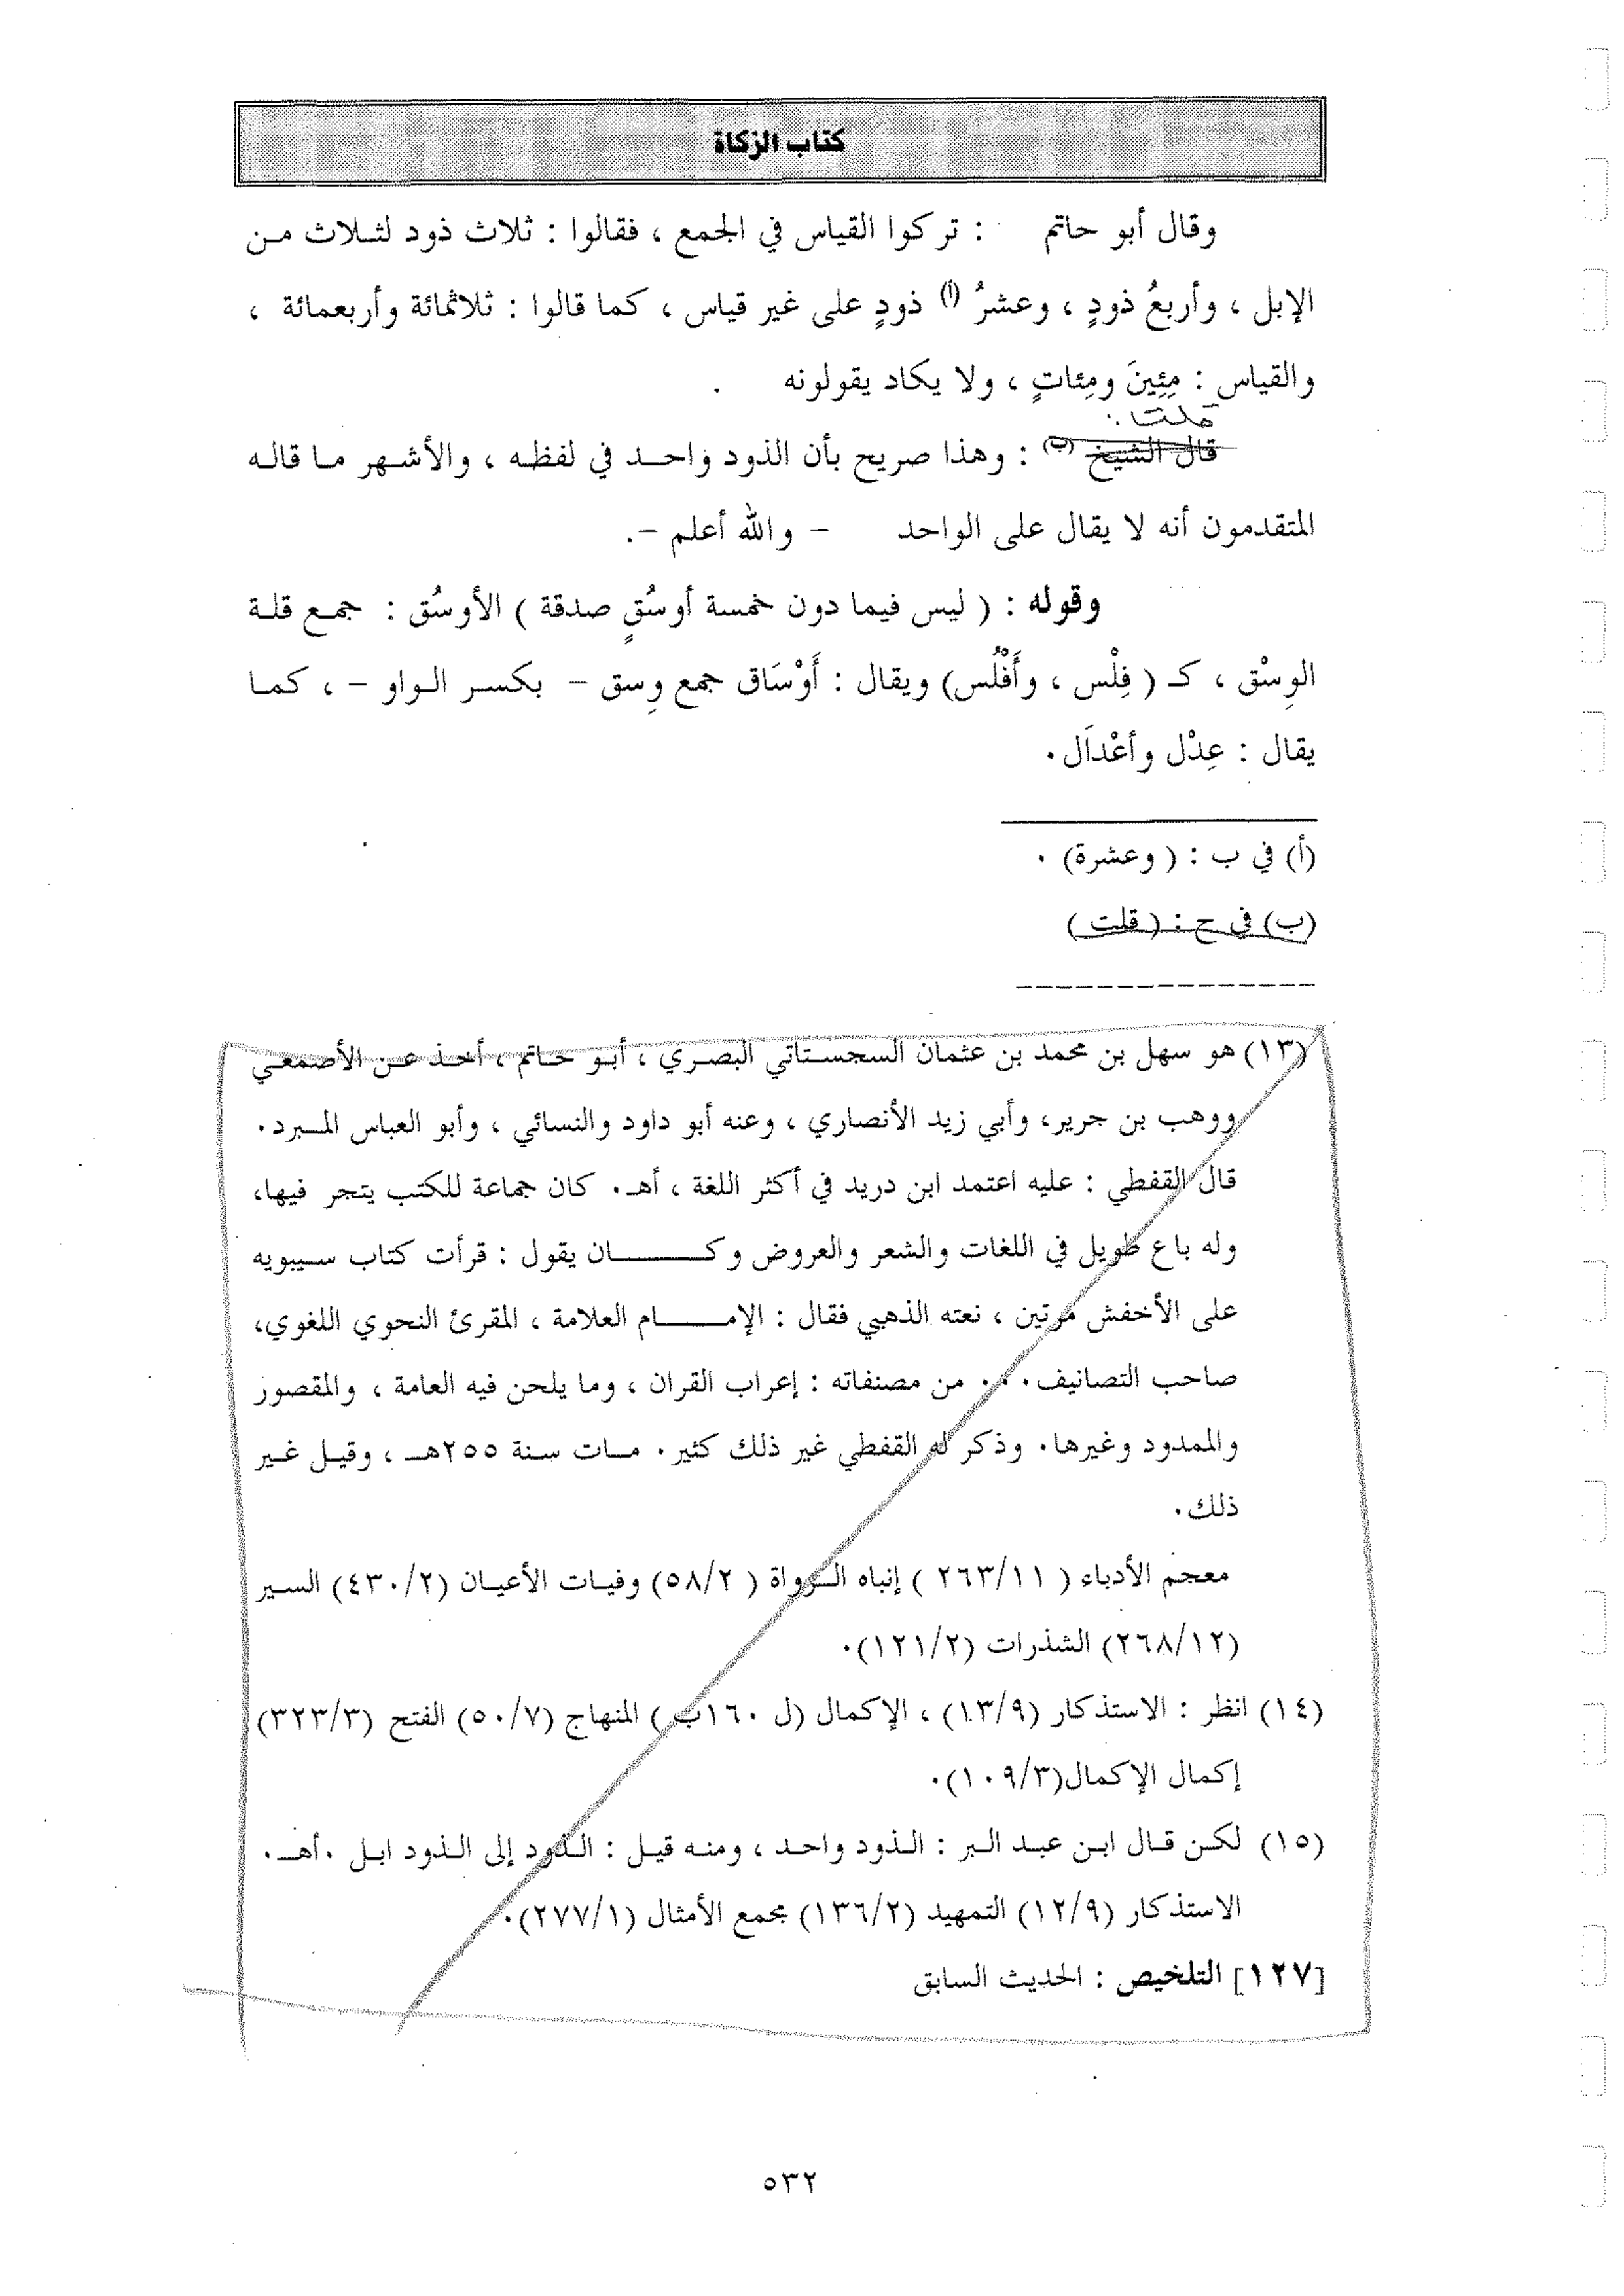 كتاب الزكاة
وقال أبو حاتم : تركوا القياس في الجمع ، فقالوا : ثلاث ذود لثلاث من
الإبل ، وأربعُ ذودٍ ، وعشرُ (أ) ذودٍ على غير قياس ، كما قالوا : ثلاثمائة وأربعمائة ،
والقياس : مِئِينَ ومِئاتٍ ، ولا يكاد يقولونه .
قلت :
قال الشيخ (ب) : وهذا صريح بأن الذود واحد في لفظه ، والأشهر ما قاله
المتقدمون أنه لا يقال على الواحد – والله أعلم –.
وقوله : ( ليس فيما دون خمسة أوسُقٍ صدقة ) الأوسُق : جمع قلة
الوِسْق ، كـ ( فِلْس ، وأَفْلُس) ويقال : أَوْسَاق جمع وِسق – بكسر الواو – ، كما
يقال : عِدْل وأعْدَال.
(أ) في ب : ( وعشرة) .
(ب) في ح : ( قلت )
(١٣) هو سهل بن محمد بن عثمان السجستاتي البصري ، أبو حاتم ، أخذ عن الأصمعي
ووهب بن جرير، وأبي زيد الأنصاري ، وعنه أبو داود والنسائي ، وأبو العباس المبرد.
قال القفطي : عليه اعتمد ابن دريد في أكثر اللغة ، أهـ. كان جماعة للكتب يتجر فيها،
وله باع طويل في اللغات والشعر والعروض وكان يقول : قرأت كتاب سيبويه
على الأخفش مرتين ، نعته الذهبي فقال : الإمام العلامة ، المقرئ النحوي اللغوي،
صاحب التصانيف... من مصنفاته : إعراب القران ، وما يلحن فيه العامة ، والمقصور
والممدود وغيرها. وذكر له القفطي غير ذلك كثير. مات سنة ٢٥٥هـ ، وقيل غير
ذلك.
معجم الأدباء ( ٢٦٣/١١ ) إنباه الرواة ( ٥٨/٢) وفيات الأعيان (٤٣٠/٢) السير
(٢٦٨/١٢) الشذرات (١٢١/٢).
(١٤) انظر : الاستذكار (١٣/٩) ، الإكمال (ل ١٦٠ب ) المنهاج (٥٠/٧) الفتح (٣٢٣/٣)
إكمال الإكمال(١٠٩/٣).
(١٥) لكن قال ابن عبد البر : الذود واحد ، ومنه قيل : الذود إلى الذود ابل .أهـ.
الاستذكار (١٢/٩) التمهيد (١٣٦/٢) مجمع الأمثال (٢٧٧/١).
[١٢٧] التلخيص : الحديث السابق
٥٣٢